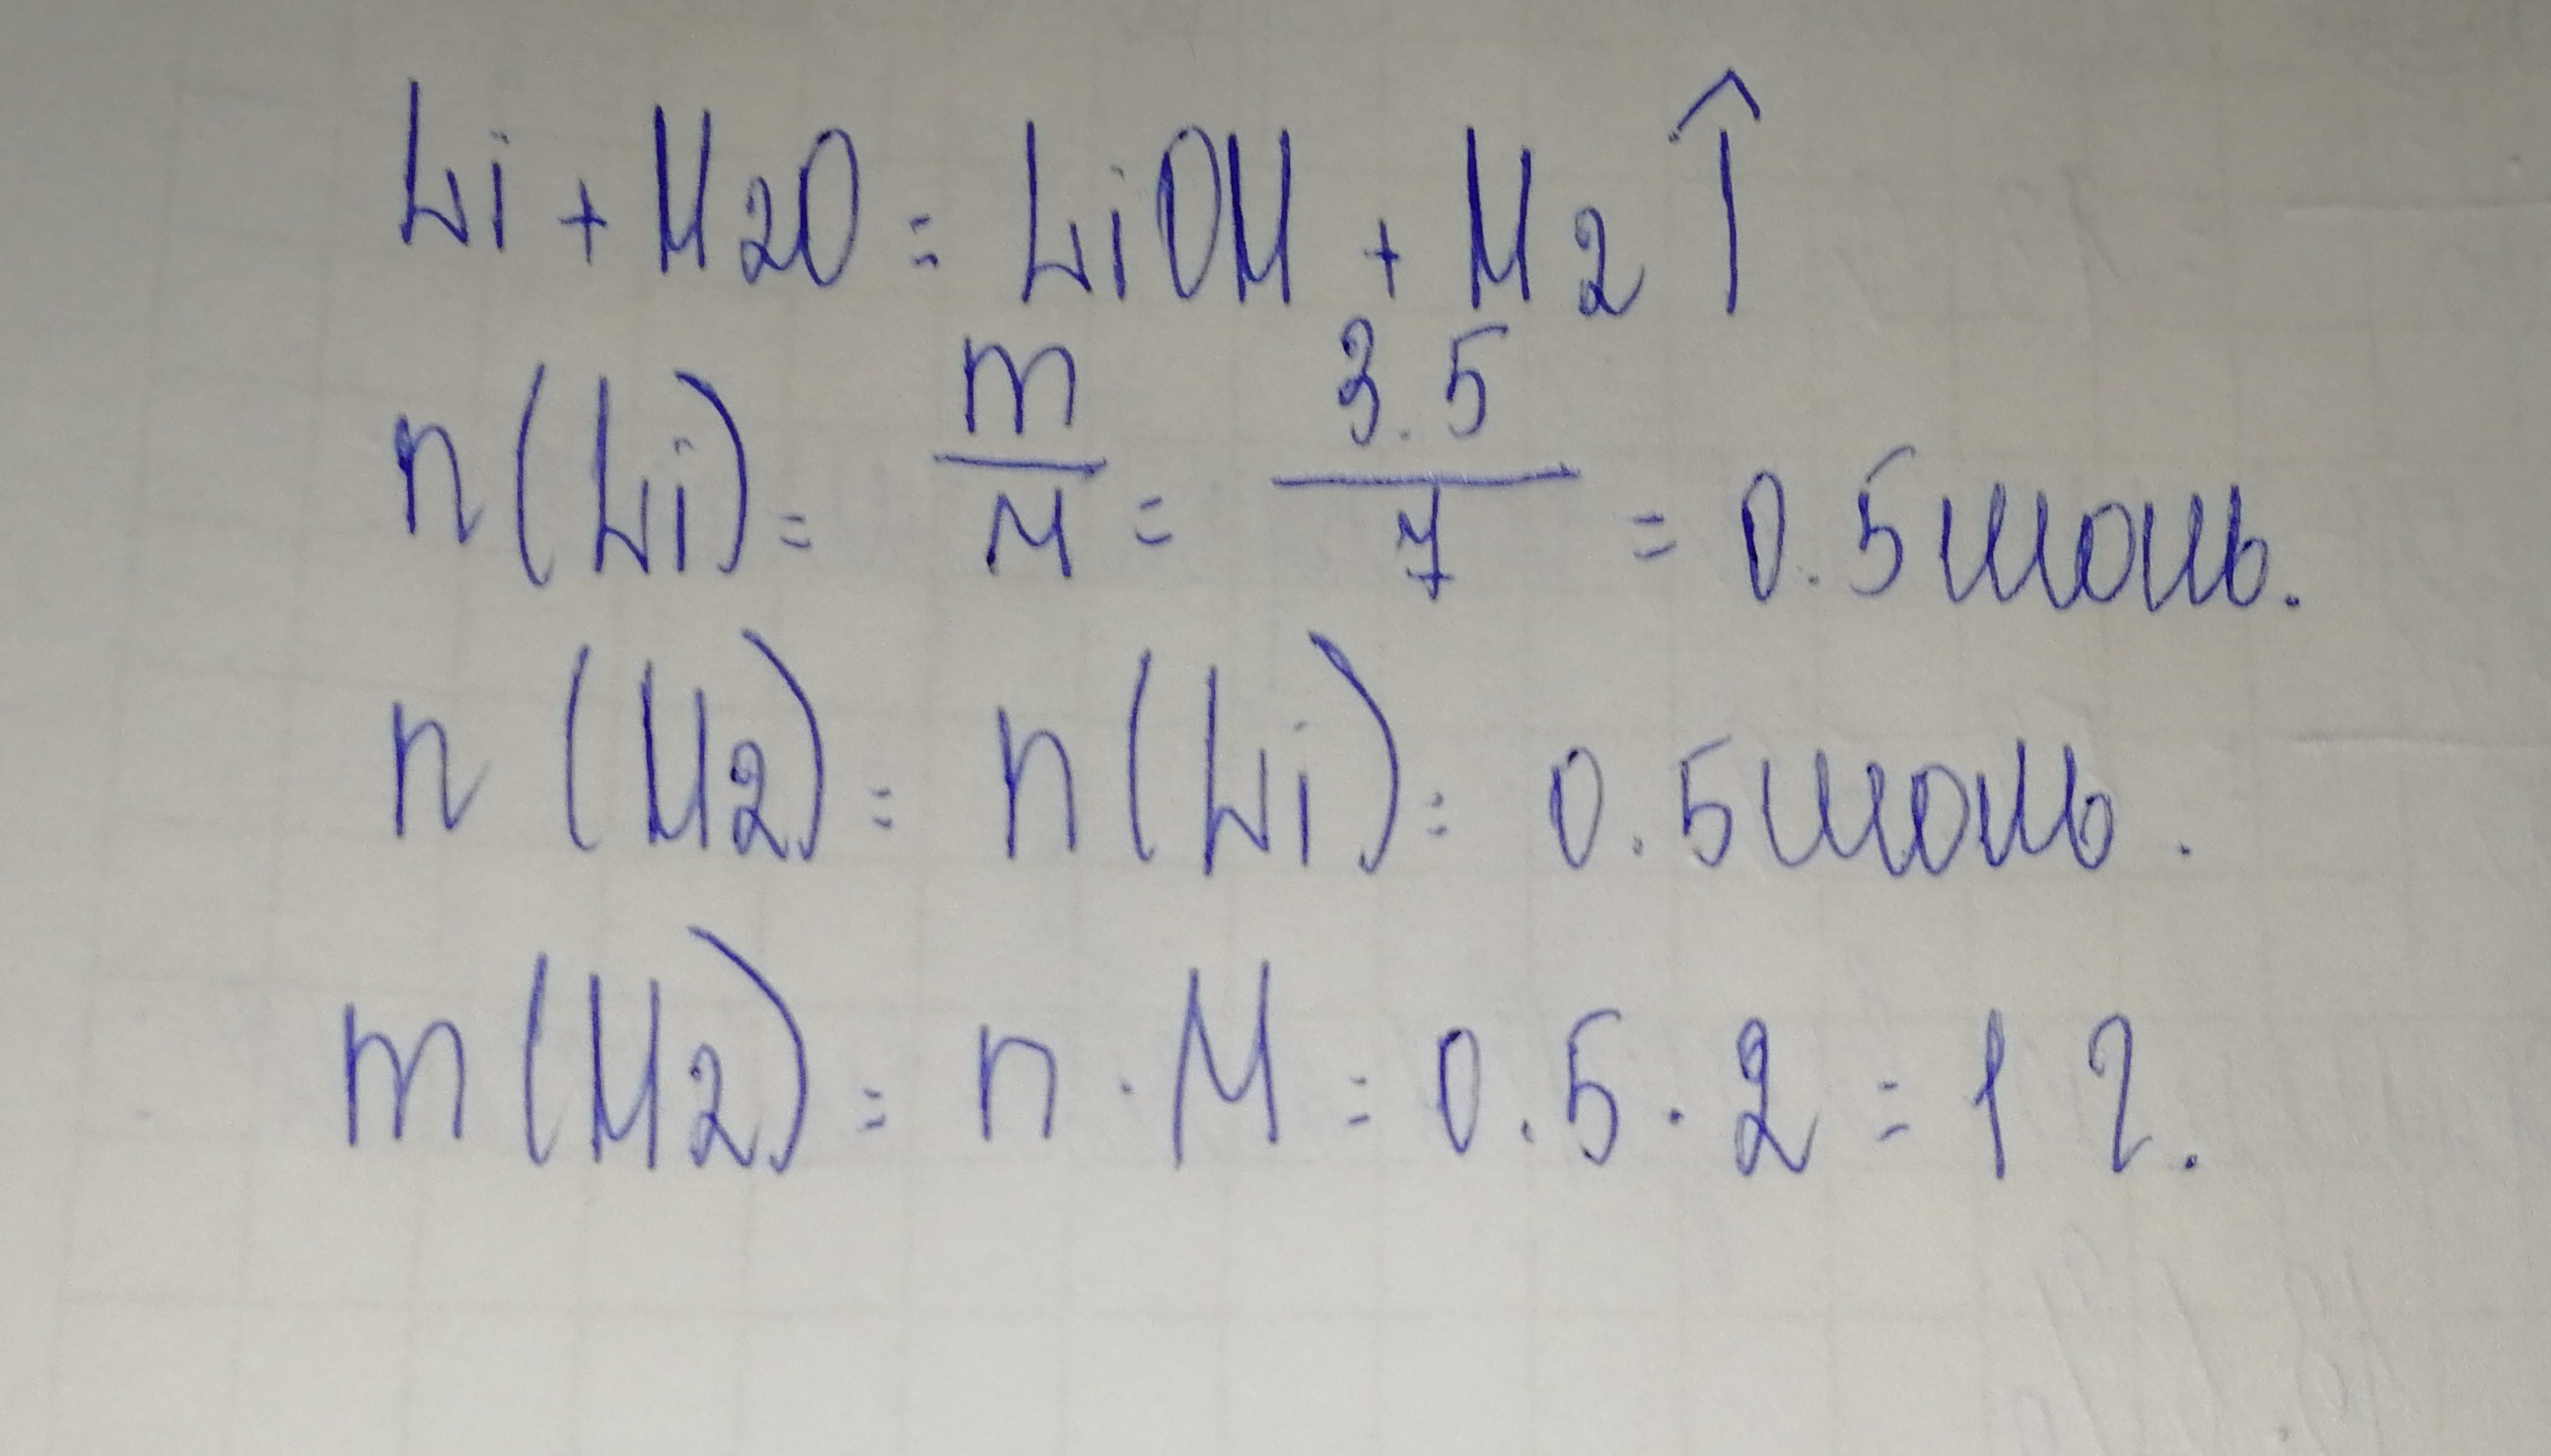 Li + H2O = LiOH + H2↑
n(Li) = m/M = 3.5/7 = 0.5 моль.
n(H2) = n(Li) = 0.5 моль.
m(H2) = n · M = 0.5 · 2 = 1 г.